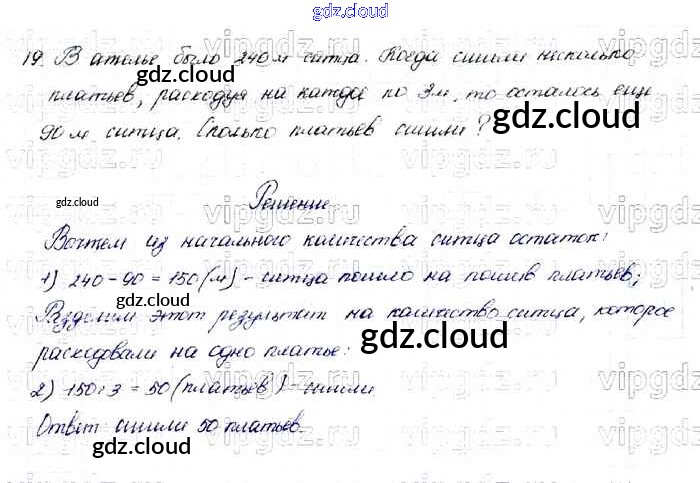 gdz.cloud
19. В ателье было 240 м ситца. Когда сшили несколько
gdz.cloud
платьев, расходуя на каждое по 3м, то осталось еще
90 м ситца. Сколько платьев сшили?
gdz.cloud
gdz.cloud
Решение
Вычтем из начального количества ситца остаток:
1) 240 - 90 = 150 (м) - ситца пошло на пошив платьев;
gdz.cloud
Разделим этот результат на количество ситца, которое
расходовали на одно платье:
gdz.cloud
2) 150 : 3 = 50 (платьев) - сшили.
gdz.cloud
Ответ сшили 50 платьев.
gdz.cloud